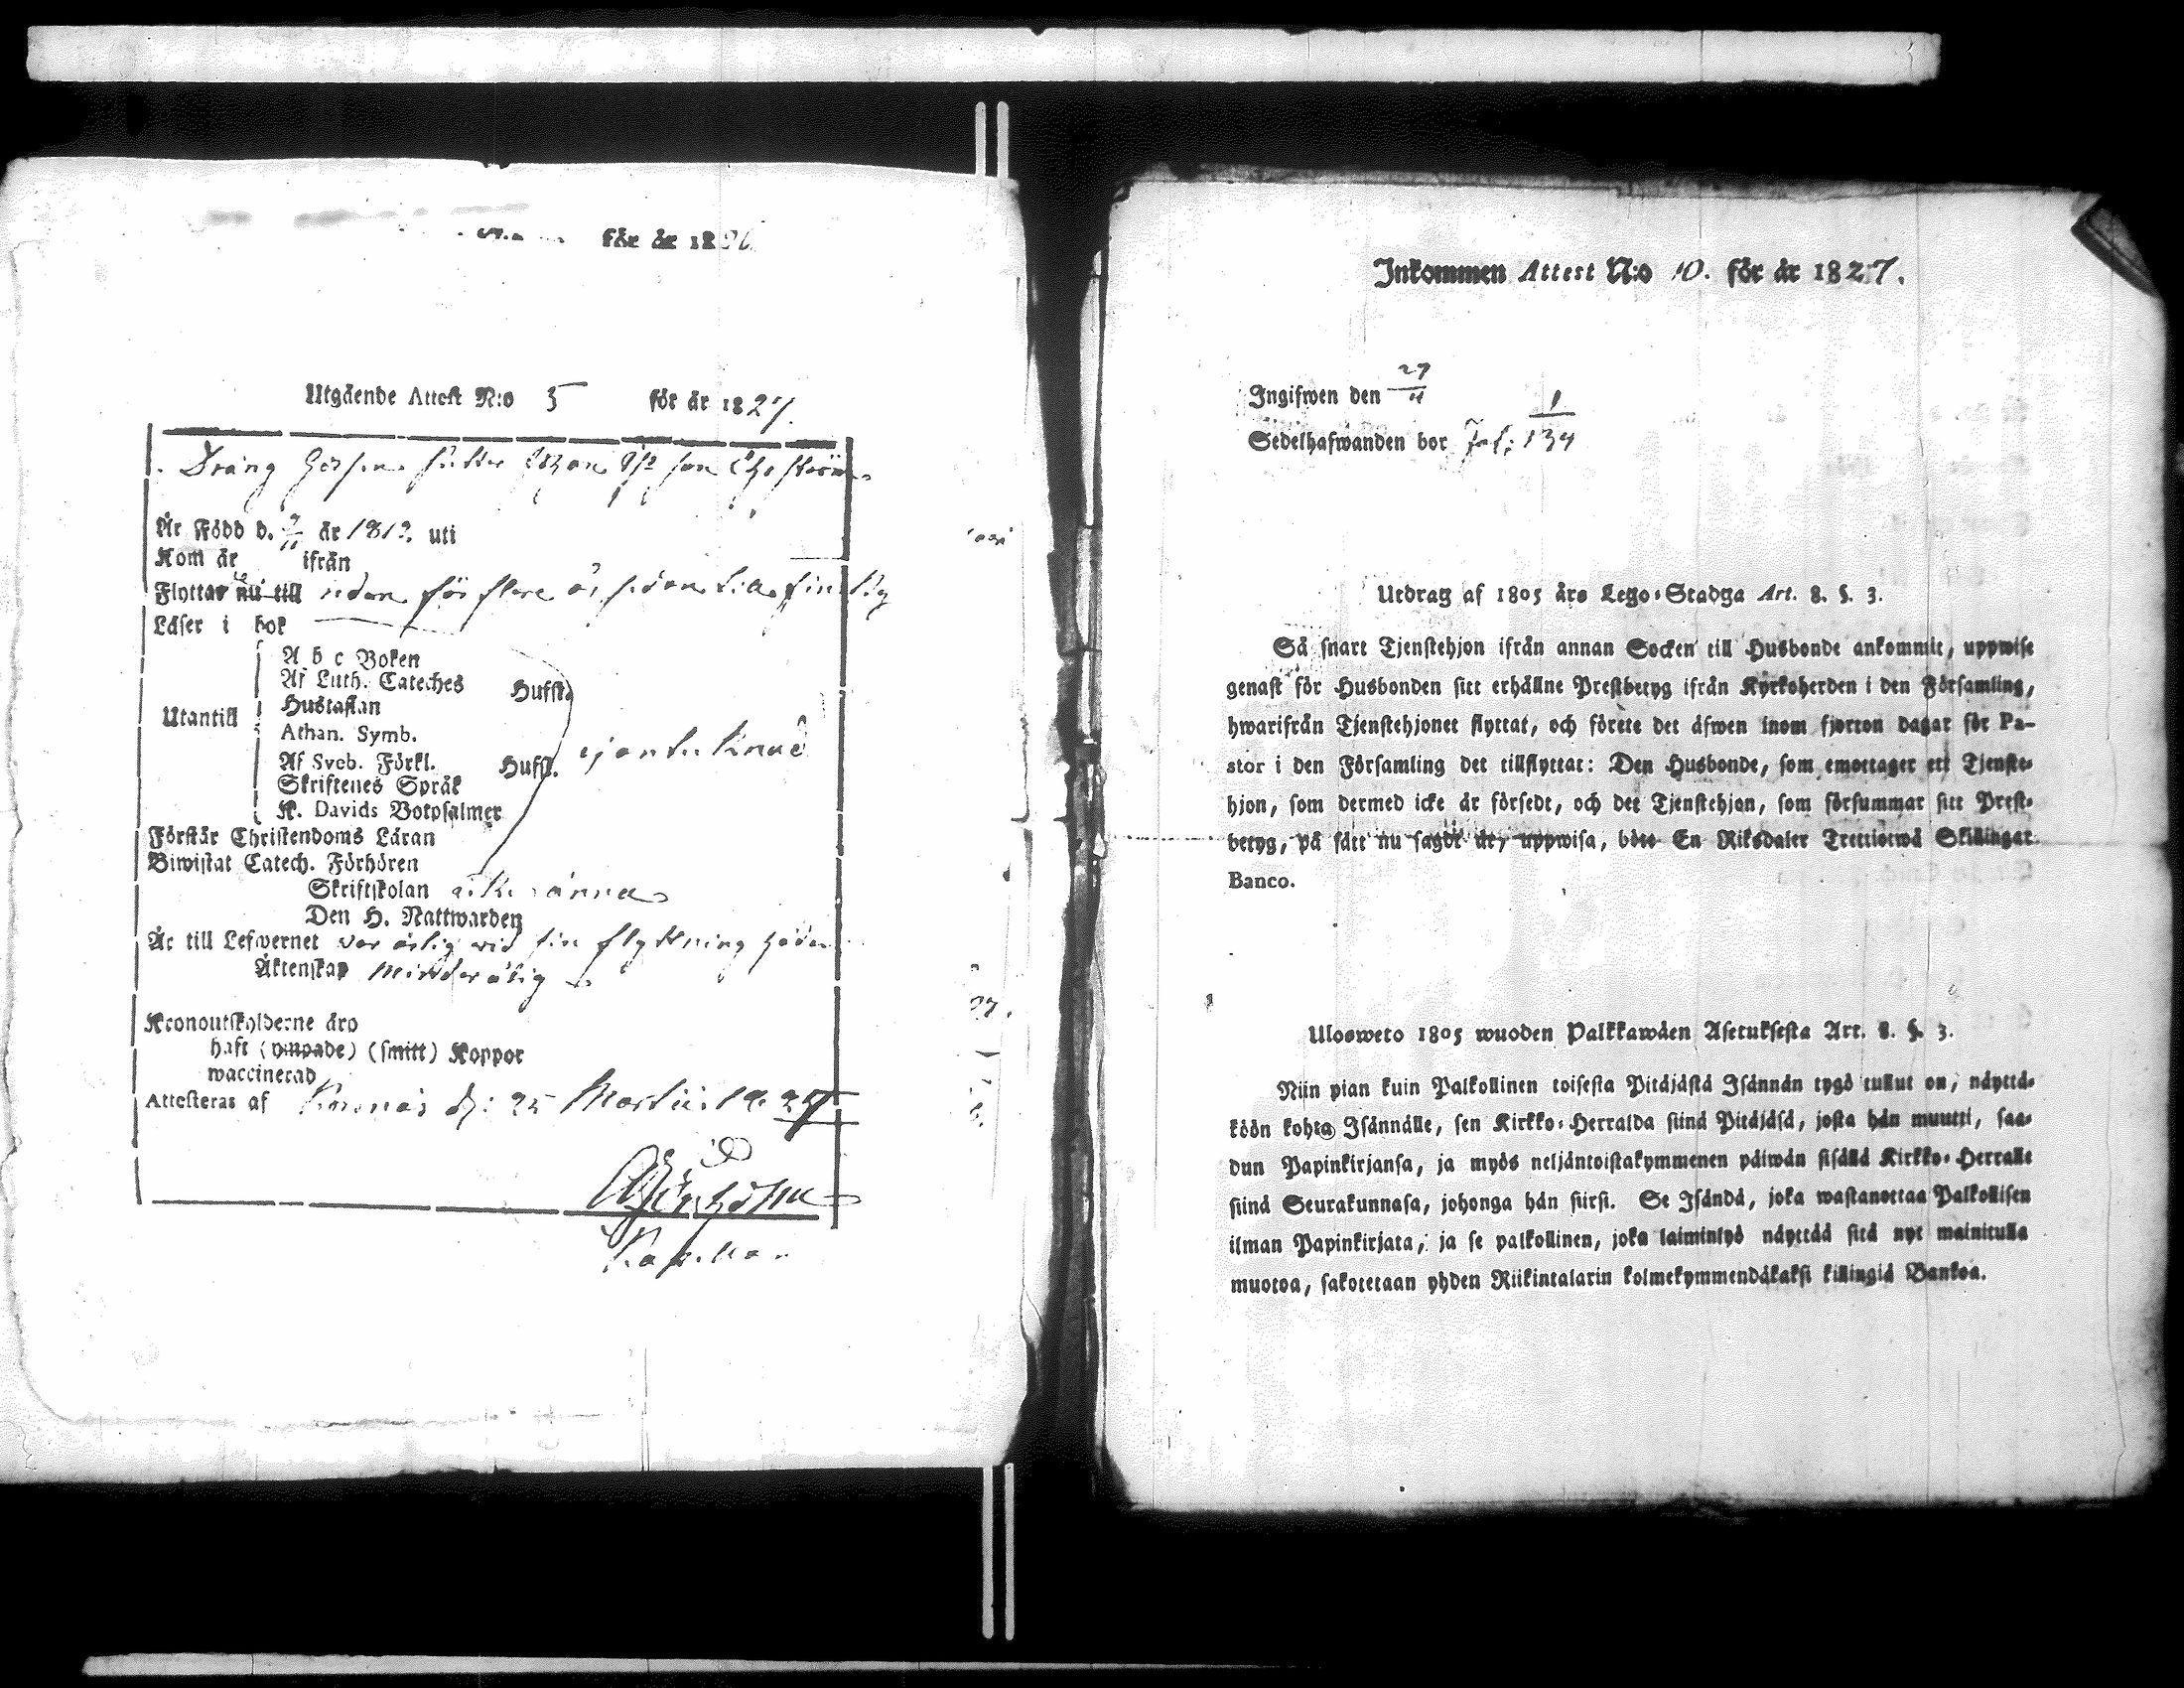 för år 18
Utgående Attest N:o 5 för år 1827.
Dräng
År Född d. år 1812. uti
Kom år ifrån
Flyttar nu till redan för flere år sedan
Läser i bok
A b c Boken
Af Luth. Cateches Hufst.
Hustaflan
Utantill
Athan. Symb.
Af Sveb. Förkl. Hufst.
Skriftenes Språk
K. Davids Botpsalmer
Förstår Christendoms Läran
Biwistat Catech. Förhören
Skriftskolan
Den H. Nattwarden
Är till Lefwernet var ärlig vid sin flyttning
Äktenskap Minderårig
Kronoutskylderne äro
haft (ympade) (smitt) Koppor
waccinerad
Attesteras af d: 25 Martii 1827
Inkommen Attest N:o 10. för år 1827.
Ingifwen den 27
Sedelhafwanden bor Fol: 134
Utdrag af 1805 års Lego-Stadga Art. 8. §. 3.
Så snart Tjenstehjon ifrån annan Socken till Husbonde ankommit, uppwise
genast för Husbonden sitt erhållne Prestbetyg ifrån Kyrkoherden i den Församling,
hwarifrån Tjenstehjonet flyttat, och förete det äfwen inom fjorton dagar för Pa-
stor i den Församling det tillflyttat: Den Husbonde, som emottager ett Tjenste-
hjon, som dermed icke är försedt, och det Tjenstehjon, som försummar sitt Prest-
betyg, på sätt nu sagdt är, uppwisa, böte En Riksdaler Trettiotwå Skillingar
Banco.
Ulosweto 1805 wuoden Palkkawäen Asetuksesta Art. 8. §. 3.
Niin pian kuin Palkollinen toisesta Pitäjästä Isännän tygö tullut on, näyttä-
köön kohta Isännälle, sen Kirkko-Herralda siinä Pitäjäsä, josta hän muutti, saa-
dun Papinkirjansa, ja myös neljäntoistakymmenen päiwän sisällä Kirkko-Herralle
siinä Seurakunnasa, johonga hän siirsi. Se Isändä, joka wastanottaa Palkollisen
ilman Papinkirjata, ja se palkollinen, joka laiminlyö näyttää sitä nyt mainitulla
muotoa, sakotetaan yhden Riikintalarin kolmekymmendäkaksi killingiä Bankoa.